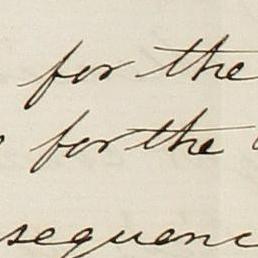 for the
for the
sequenc